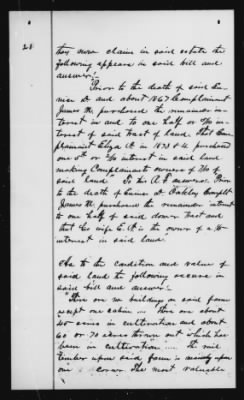 28
they now claim in said estate the
following appears in said bill and
answer:
"Prior to the death of said
and about 1867 Complainant
James M. purchased the remainder in-
terest in and to one half or 5/10 in-
terest of said tract of land. That Com-
plainant Eliza A. in 1873 &
one 5th or 2/10 interest in said land
making Complainants owners of 7/10 of
said land. In his A. F. answers. Prior
to the death of Oakley Complt
James M. purchased the remainder interest
to one half of said dower tract and
that his wife E. A. is the owner of a
interest in said land.
As to the condition and value of
said land the following occurs in
said bill and answer:
"There are no buildings on said farm
except one cabin. There are about
40 acres in cultivation and about
60 or 70 acres thrown out which has
been in cultivation .... The
timber upon said farm is mainly upon
one corner the most valuable